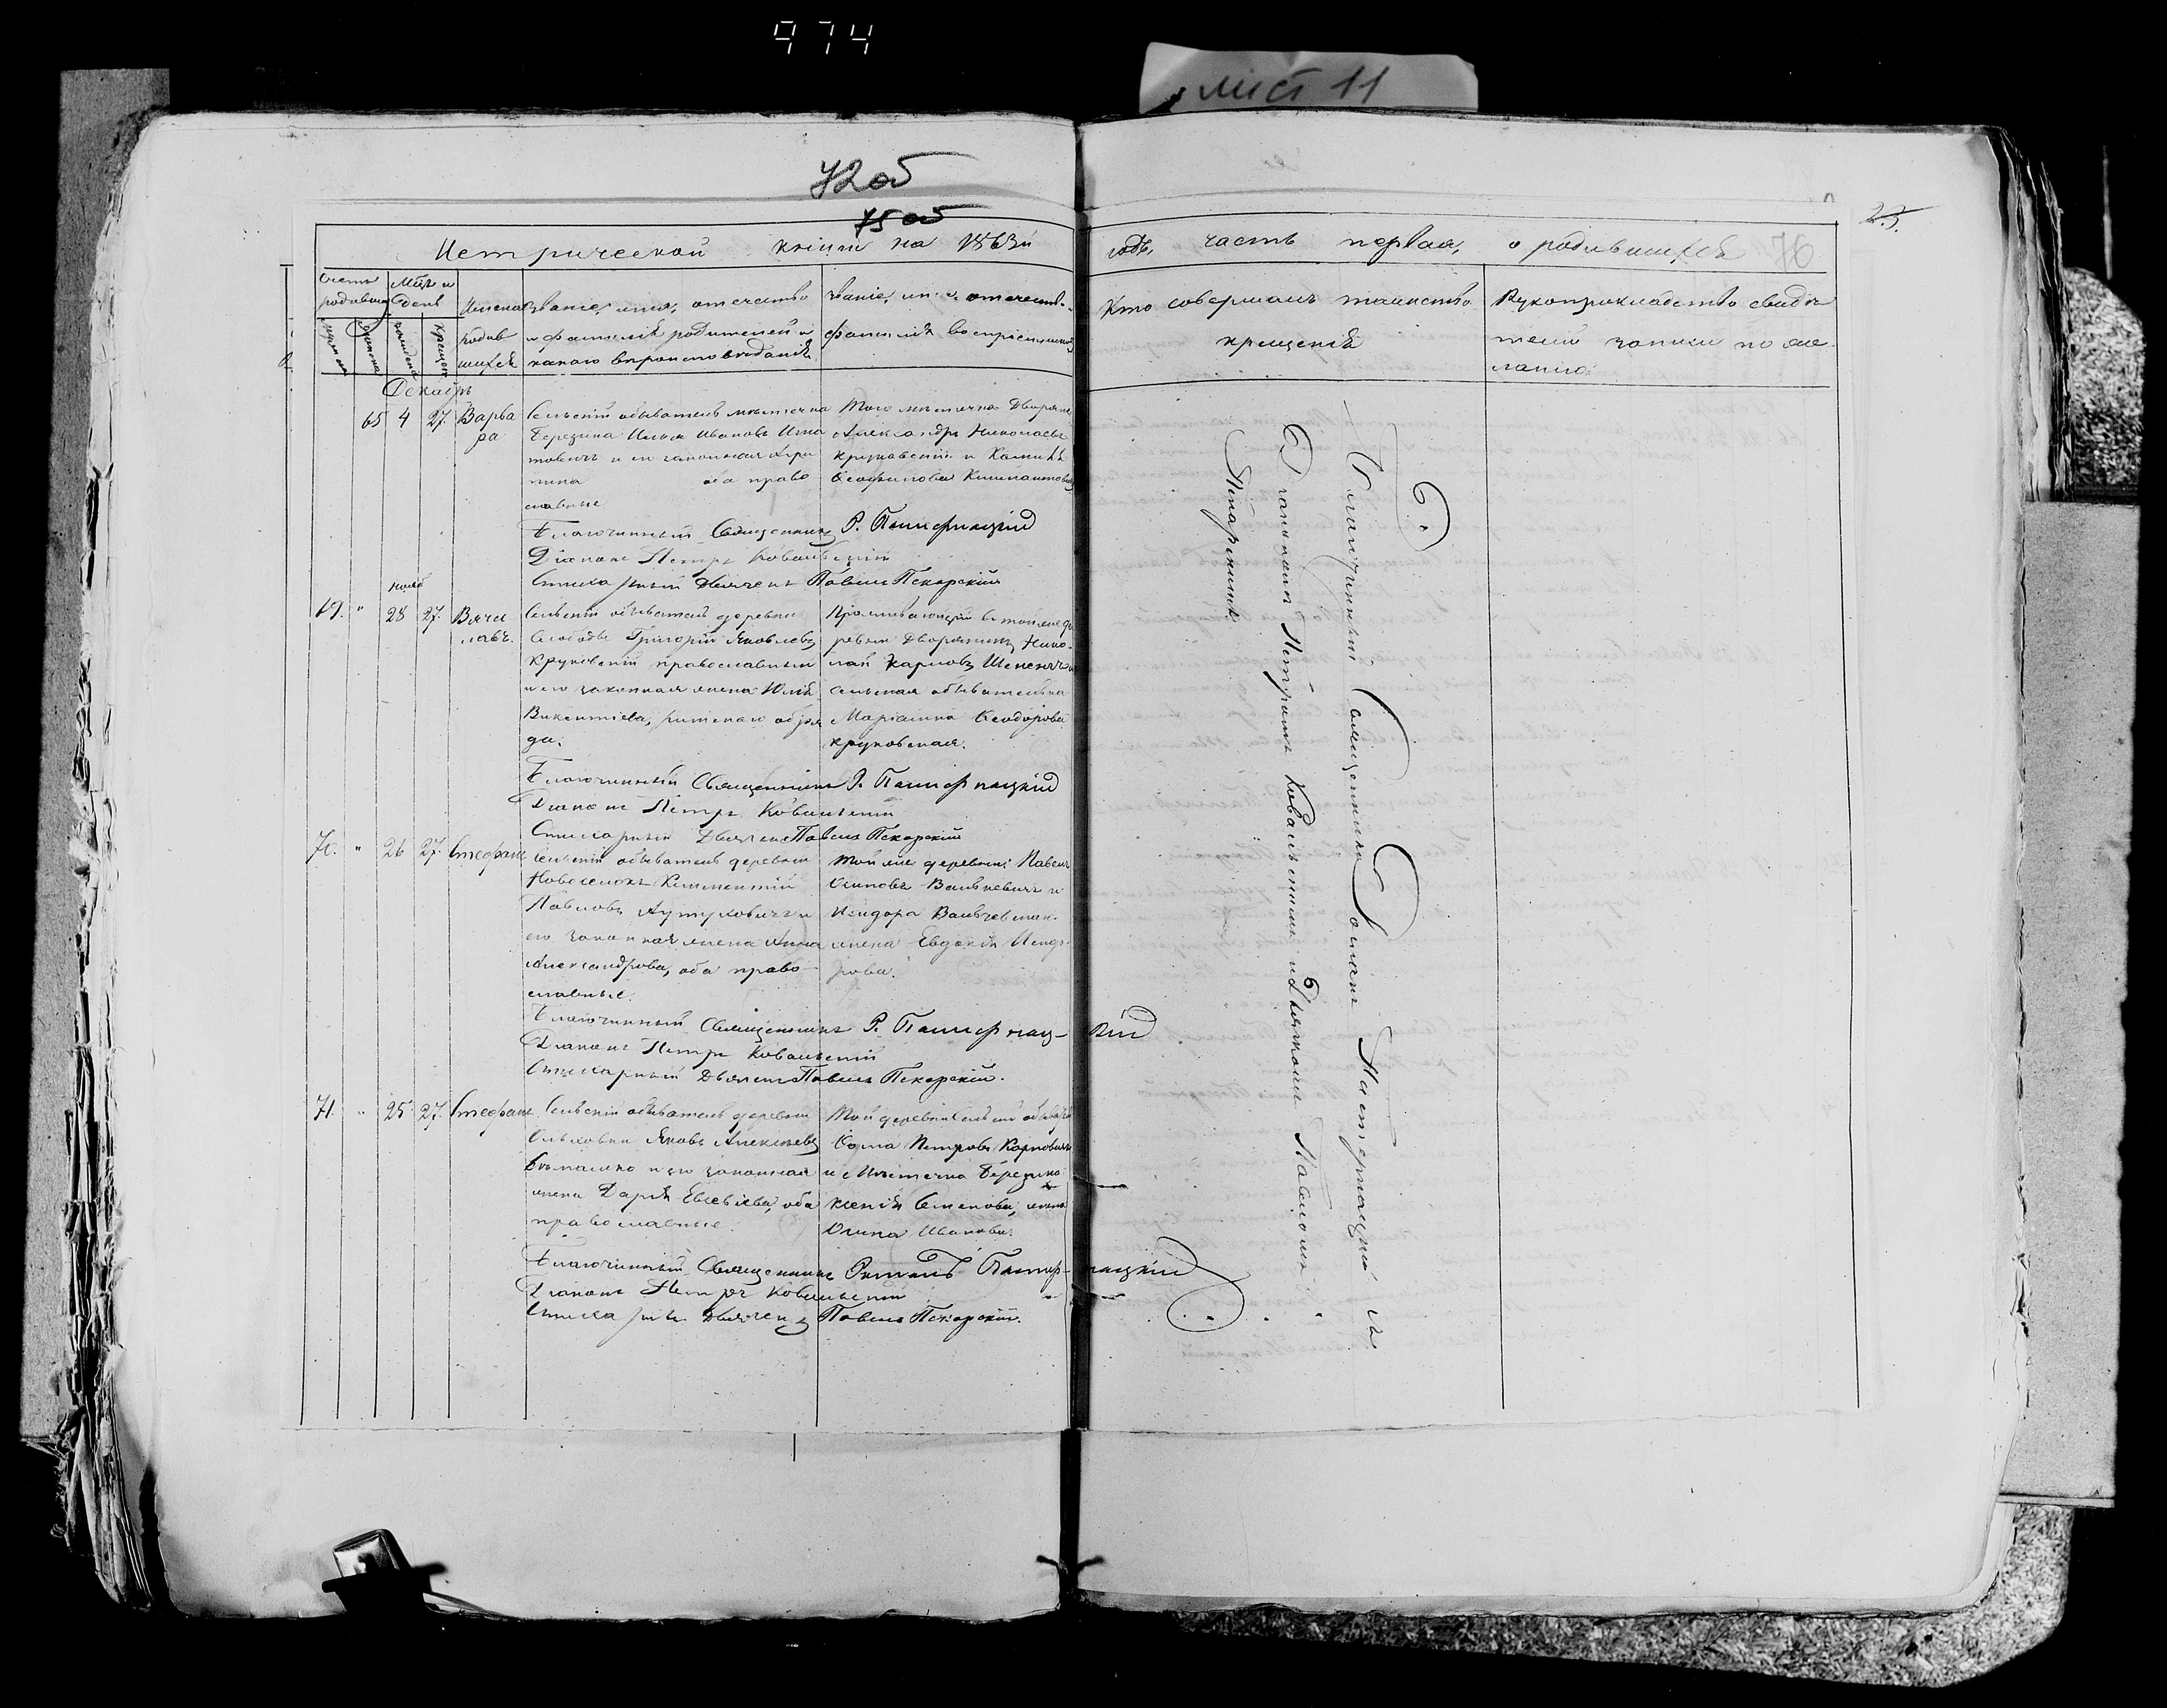 974
лист 11
72 об
75 об
23.
Метрической книги на 1863й
годъ, часть первая, о родившихся
76
Счетъ родивш
Мцъ и день
Имена родив шихся
Званіе, имя, отечество
и фамилія родителей и
какого вѣроисповѣданія.
Званіе, имя, отечество
фамилія воспріемниковъ
Кто совершалъ таинство
крещенія
Рукоприкладство свидѣ
телей записи по же
ланію
Декабрь
65 4 27. Варва
ра
Сельскій обыватель мѣстечка
Березина Илья Ивановъ Игна
товичъ и его законная
оба право
славные
Того мѣстечка Дворянинъ
Александръ Николаевъ
Круковскій и Камила
Ѳеофилова
Благочинный Священникъ Р. Пастернацкій
Діаконъ Петръ Ковальскій
Стихарный Дьячекъ Павелъ Пекарскій
нояб
69. " 28 27. Вяче
лавъ.
Сельскій обыватель деревни
Слободы Григорій Яковлевъ
Круковскій православный
и его законная жена Юлія
Викентіева, римскаго обря
да.
Проживающій въ той же де
ревни Дворянинъ Нико
лай Карловъ
сельская обывателька
Маріанна Ѳеодорова
Круковская.
Благочинный Священникъ Р. Пастернацкій
Діаконъ Петръ Ковальскій
Стихарный Дьячекъ Павелъ Пекарскій
70. " 26 27. Стефанъ
Сельскій обыватель деревни
Новоселокъ Климентій
Павловъ Аутуховичъ и
его законная жена Анна
Александрова, оба право
славные.
Той же деревни: Павелъ
Осиповъ Валькевичъ и
Исидора
жена Евдокія Исидо
рова.
Благочинный Священникъ Р. Пастернацкій
Діаконъ Петръ Ковальскій
Стихарный Дьячекъ Павелъ Пекарскій.
71. " 25 27. Стефанъ
Сельскій обыватель деревни
Ольховки Яковъ Алексѣевъ
и его законная
жена Дарія Евсевіева, оба
православные.
Той деревни сельскій обыватель
Ѳома Петровъ Карповичъ
и Мѣстечка Березина
Ксенія Семенова, жена
Осипа Иванова.
Благочинный Священникъ Романъ Пастернацкій
Діаконъ Петръ Ковальскій
Стихарный Дьячекъ Павелъ Пекарскій.
Благочинный Священникъ Романъ Пастернацкій съ
Діакономъ Петромъ Ковальскимъ и Дьячкомъ Павломъ
Пекарскимъ.